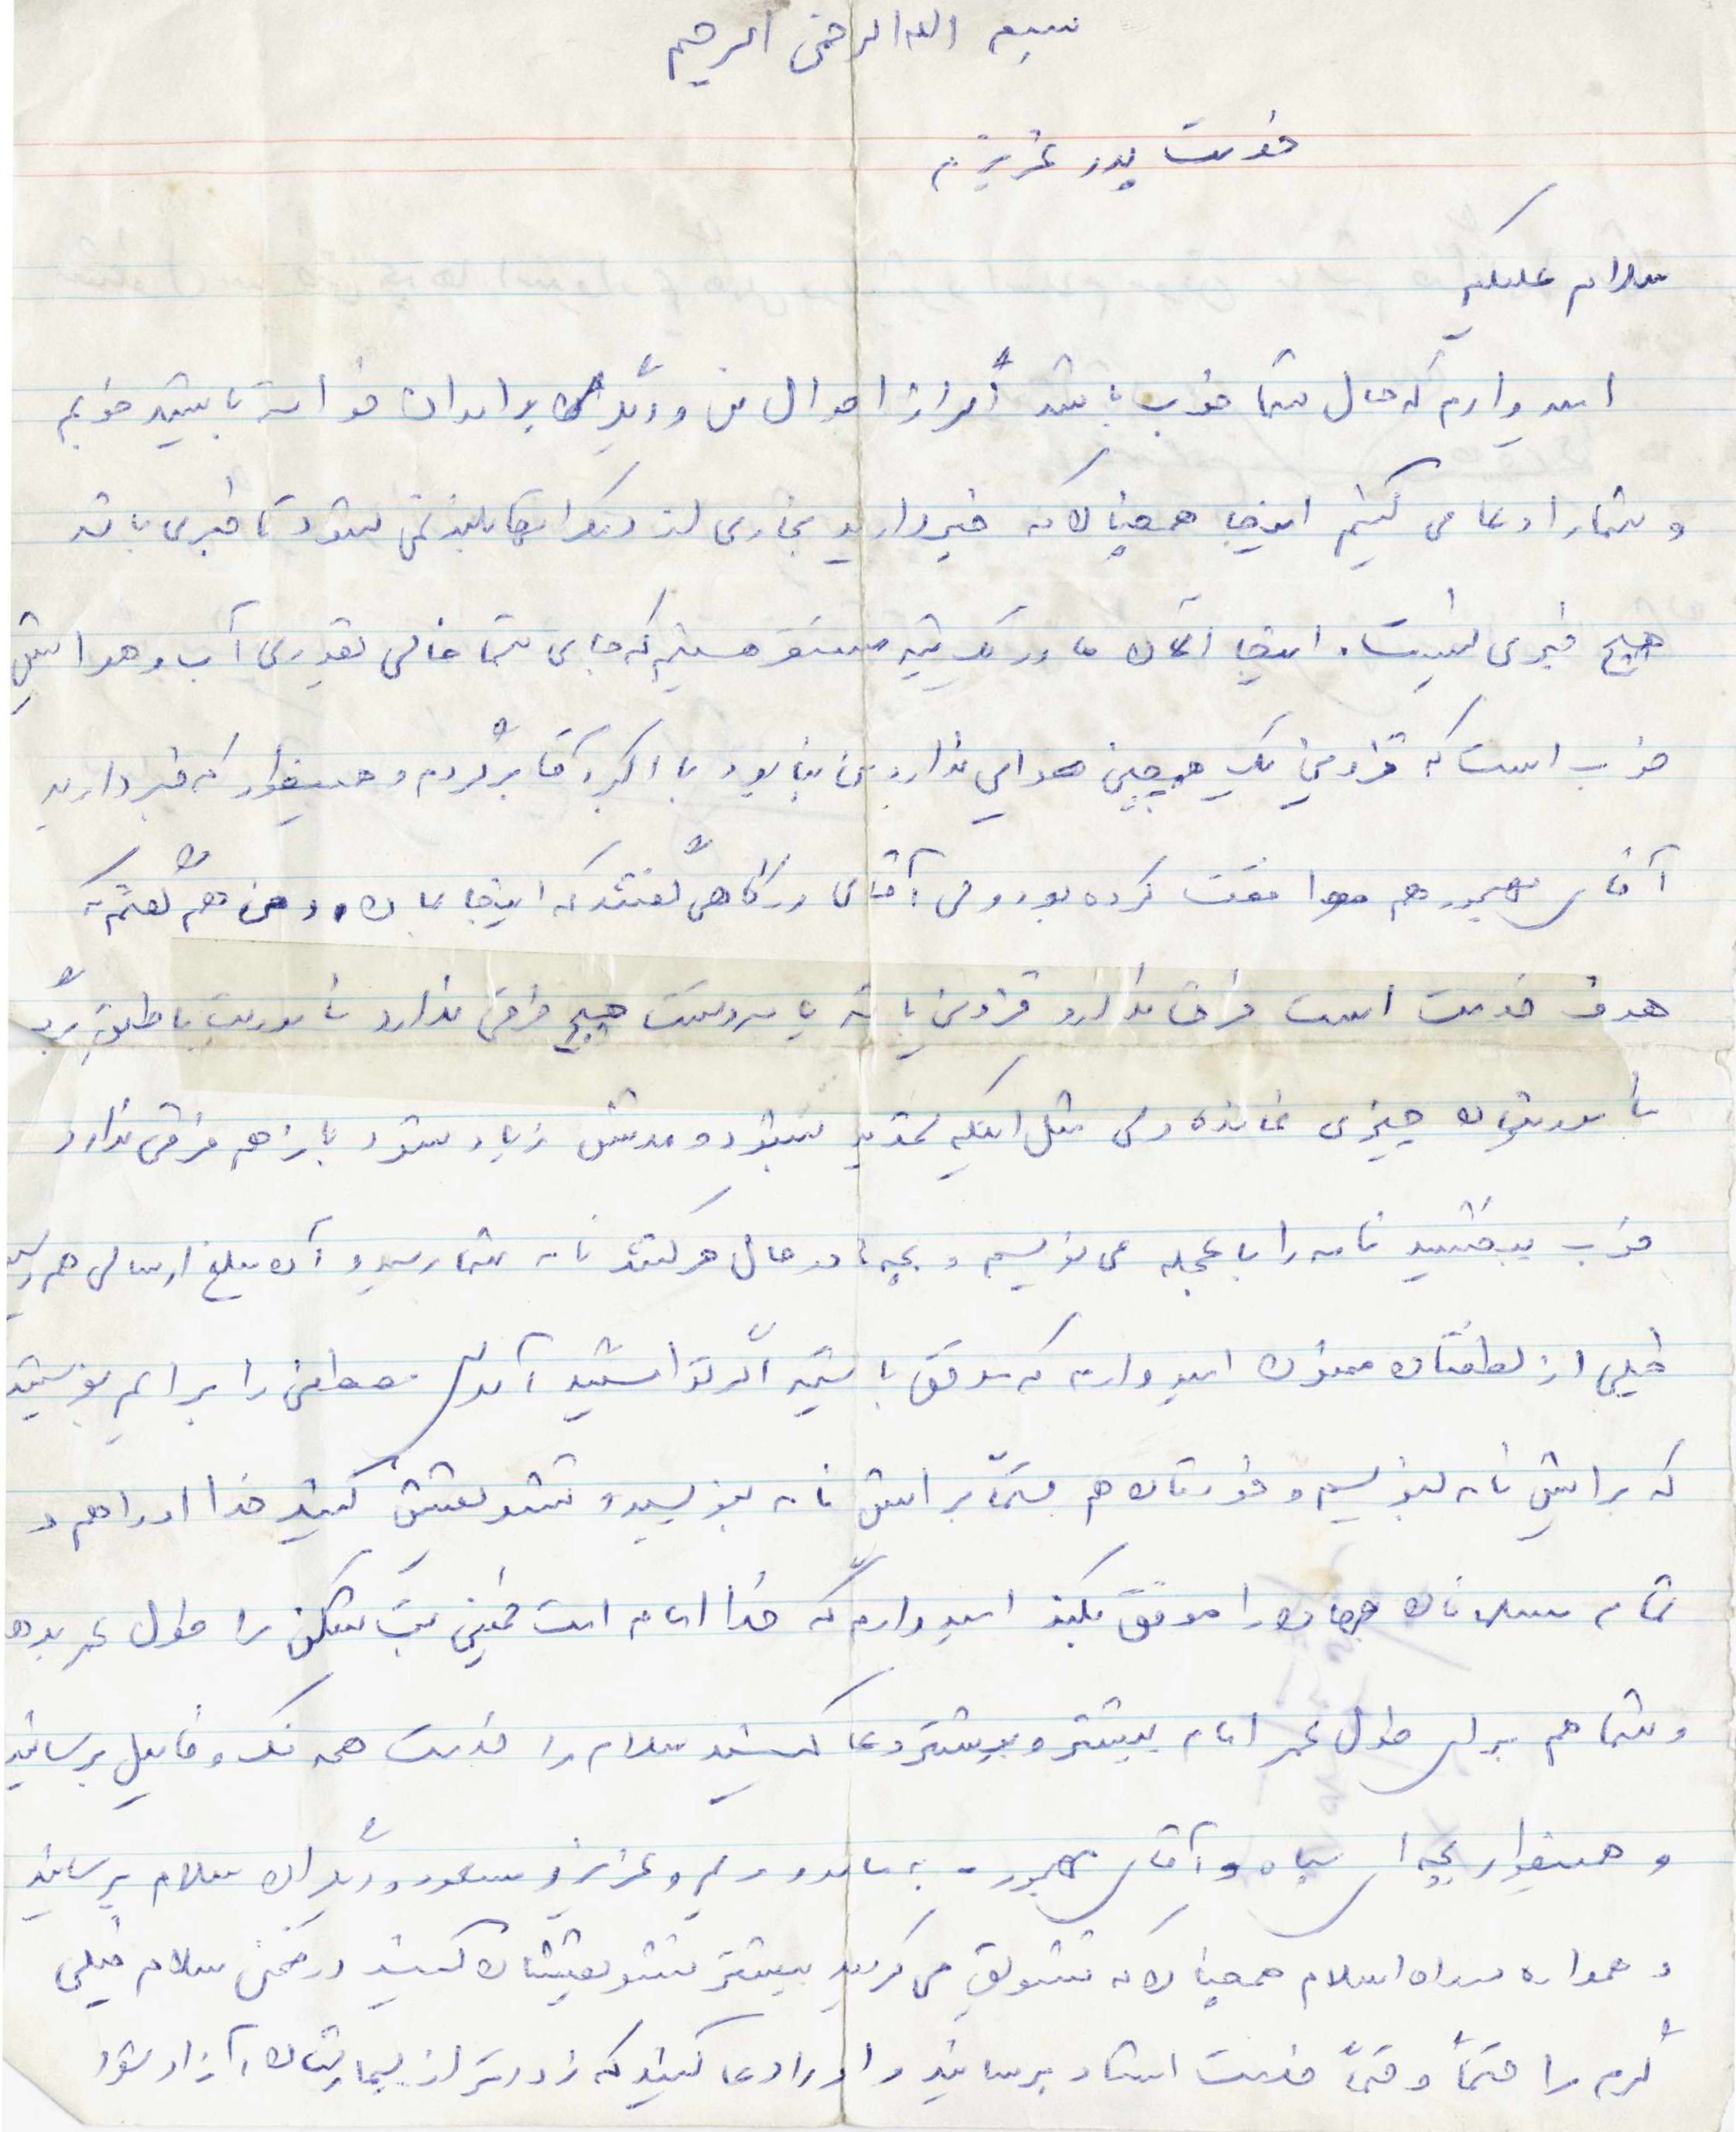 بسم الله الرحمن الرحیم
خدمت پدر عزیزم
سلام علیکم
امیدوارم که حال شما خوب باشد اگر از احوال من و دیگر برادران خواسته باشید خوبم
و شما را دعا می کنیم اینجا همچنان که خبر دارید بخاری از دیگرانها بلند نمی شود تا خبری باشد
هیچ خبری نیست. اینجا الان ما در یک تپه مستقر هستیم که جای شما خالی بقدری آب و هوایش
خوب است که قزوین یک همچین هوایی ندارد بنا بود با اکبر آقا برگردم و همینطور که خبر دارید
آقای مهجور هم موافقت کرده بود ولی آقای درگاهی گفتند که اینجا بمان و من هم گفتم که
هدف خدمت است فرق ندارد قزوین یا بانه یا سردشت هیچ فرقی ندارد مأموریت با طلوبی
مأموریتمان چیزی نمانده ولی مثل اینکه تمدید بشود و مدتش زیاد شود باز هم فرقی ندارد
خوب ببخشید نامه را با عجله می نویسم و بچه ها در حال حرکتند نامه شما رسید و آن مبلغ ارسالی هم رسید
خیلی از لطفتان ممنون امیدوارم که موفق باشید اگر توانستید آدرس مصطفی را برایم بفرستید
که برایش نامه بنویسم و خودتان هم حتماً برایش نامه بنویسید و تشویقش کنید خدا او را هم و
تمام مسلمانان جهان را موفق بکند امیدوارم که خدا امام امت خمینی بت شکن را طول عمر بدهد
و شما هم برای طول عمر امام بیشتر و بیشتر دعا کنید سلام را خدمت همه فک و فامیل برسانید
و همینطور بچه های سپاه و آقای مهجور - به مادر و مریم و عزیز و مسعود و دیگران سلام برسانید
و همواره براه اسلام همچنان که تشویق می کردید بیشتر تشویقشان کنید در ضمن سلام خیلی
گرم را حتماً و حتماً خدمت استاد برسانید و او را دعا کنید که زودتر از بیماریشان آزاد شود